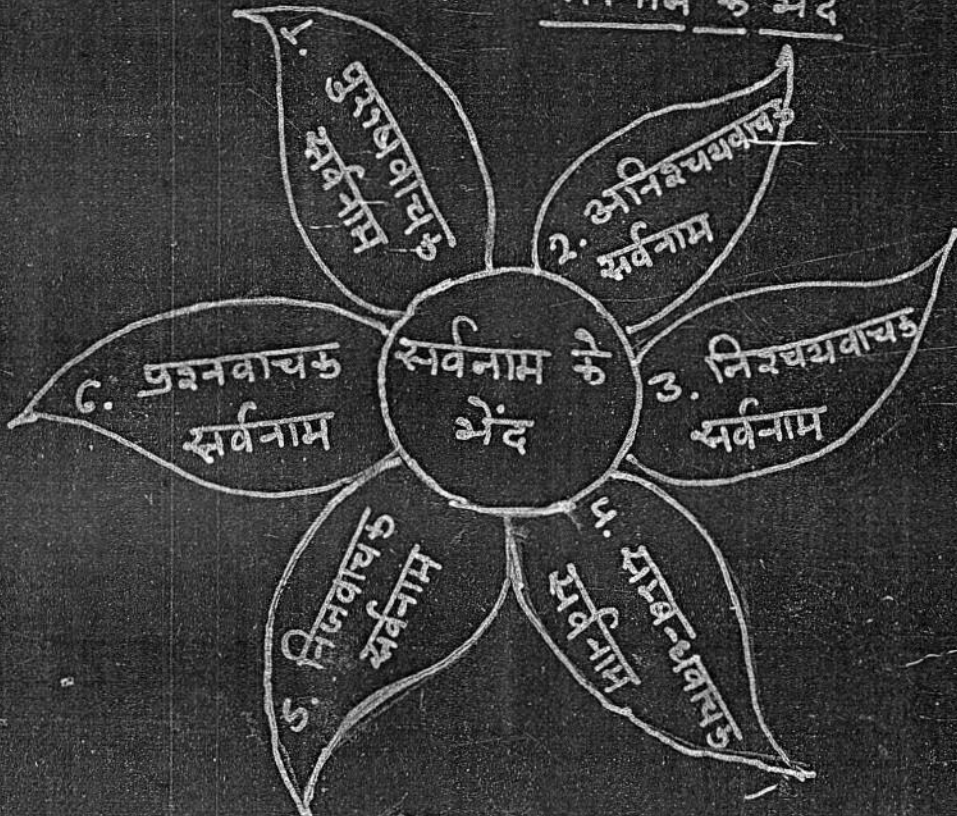 के भेद
सर्वनाम के
भेंद
1. पुरुषवाचक
सर्वनाम
2. अनिश्चयवाचक
सर्वनाम
3. निश्चयवाचक
सर्वनाम
4. सम्बन्धवाचक
सर्वनाम
5. निजवाचक
सर्वनाम
6. प्रश्नवाचक
सर्वनाम